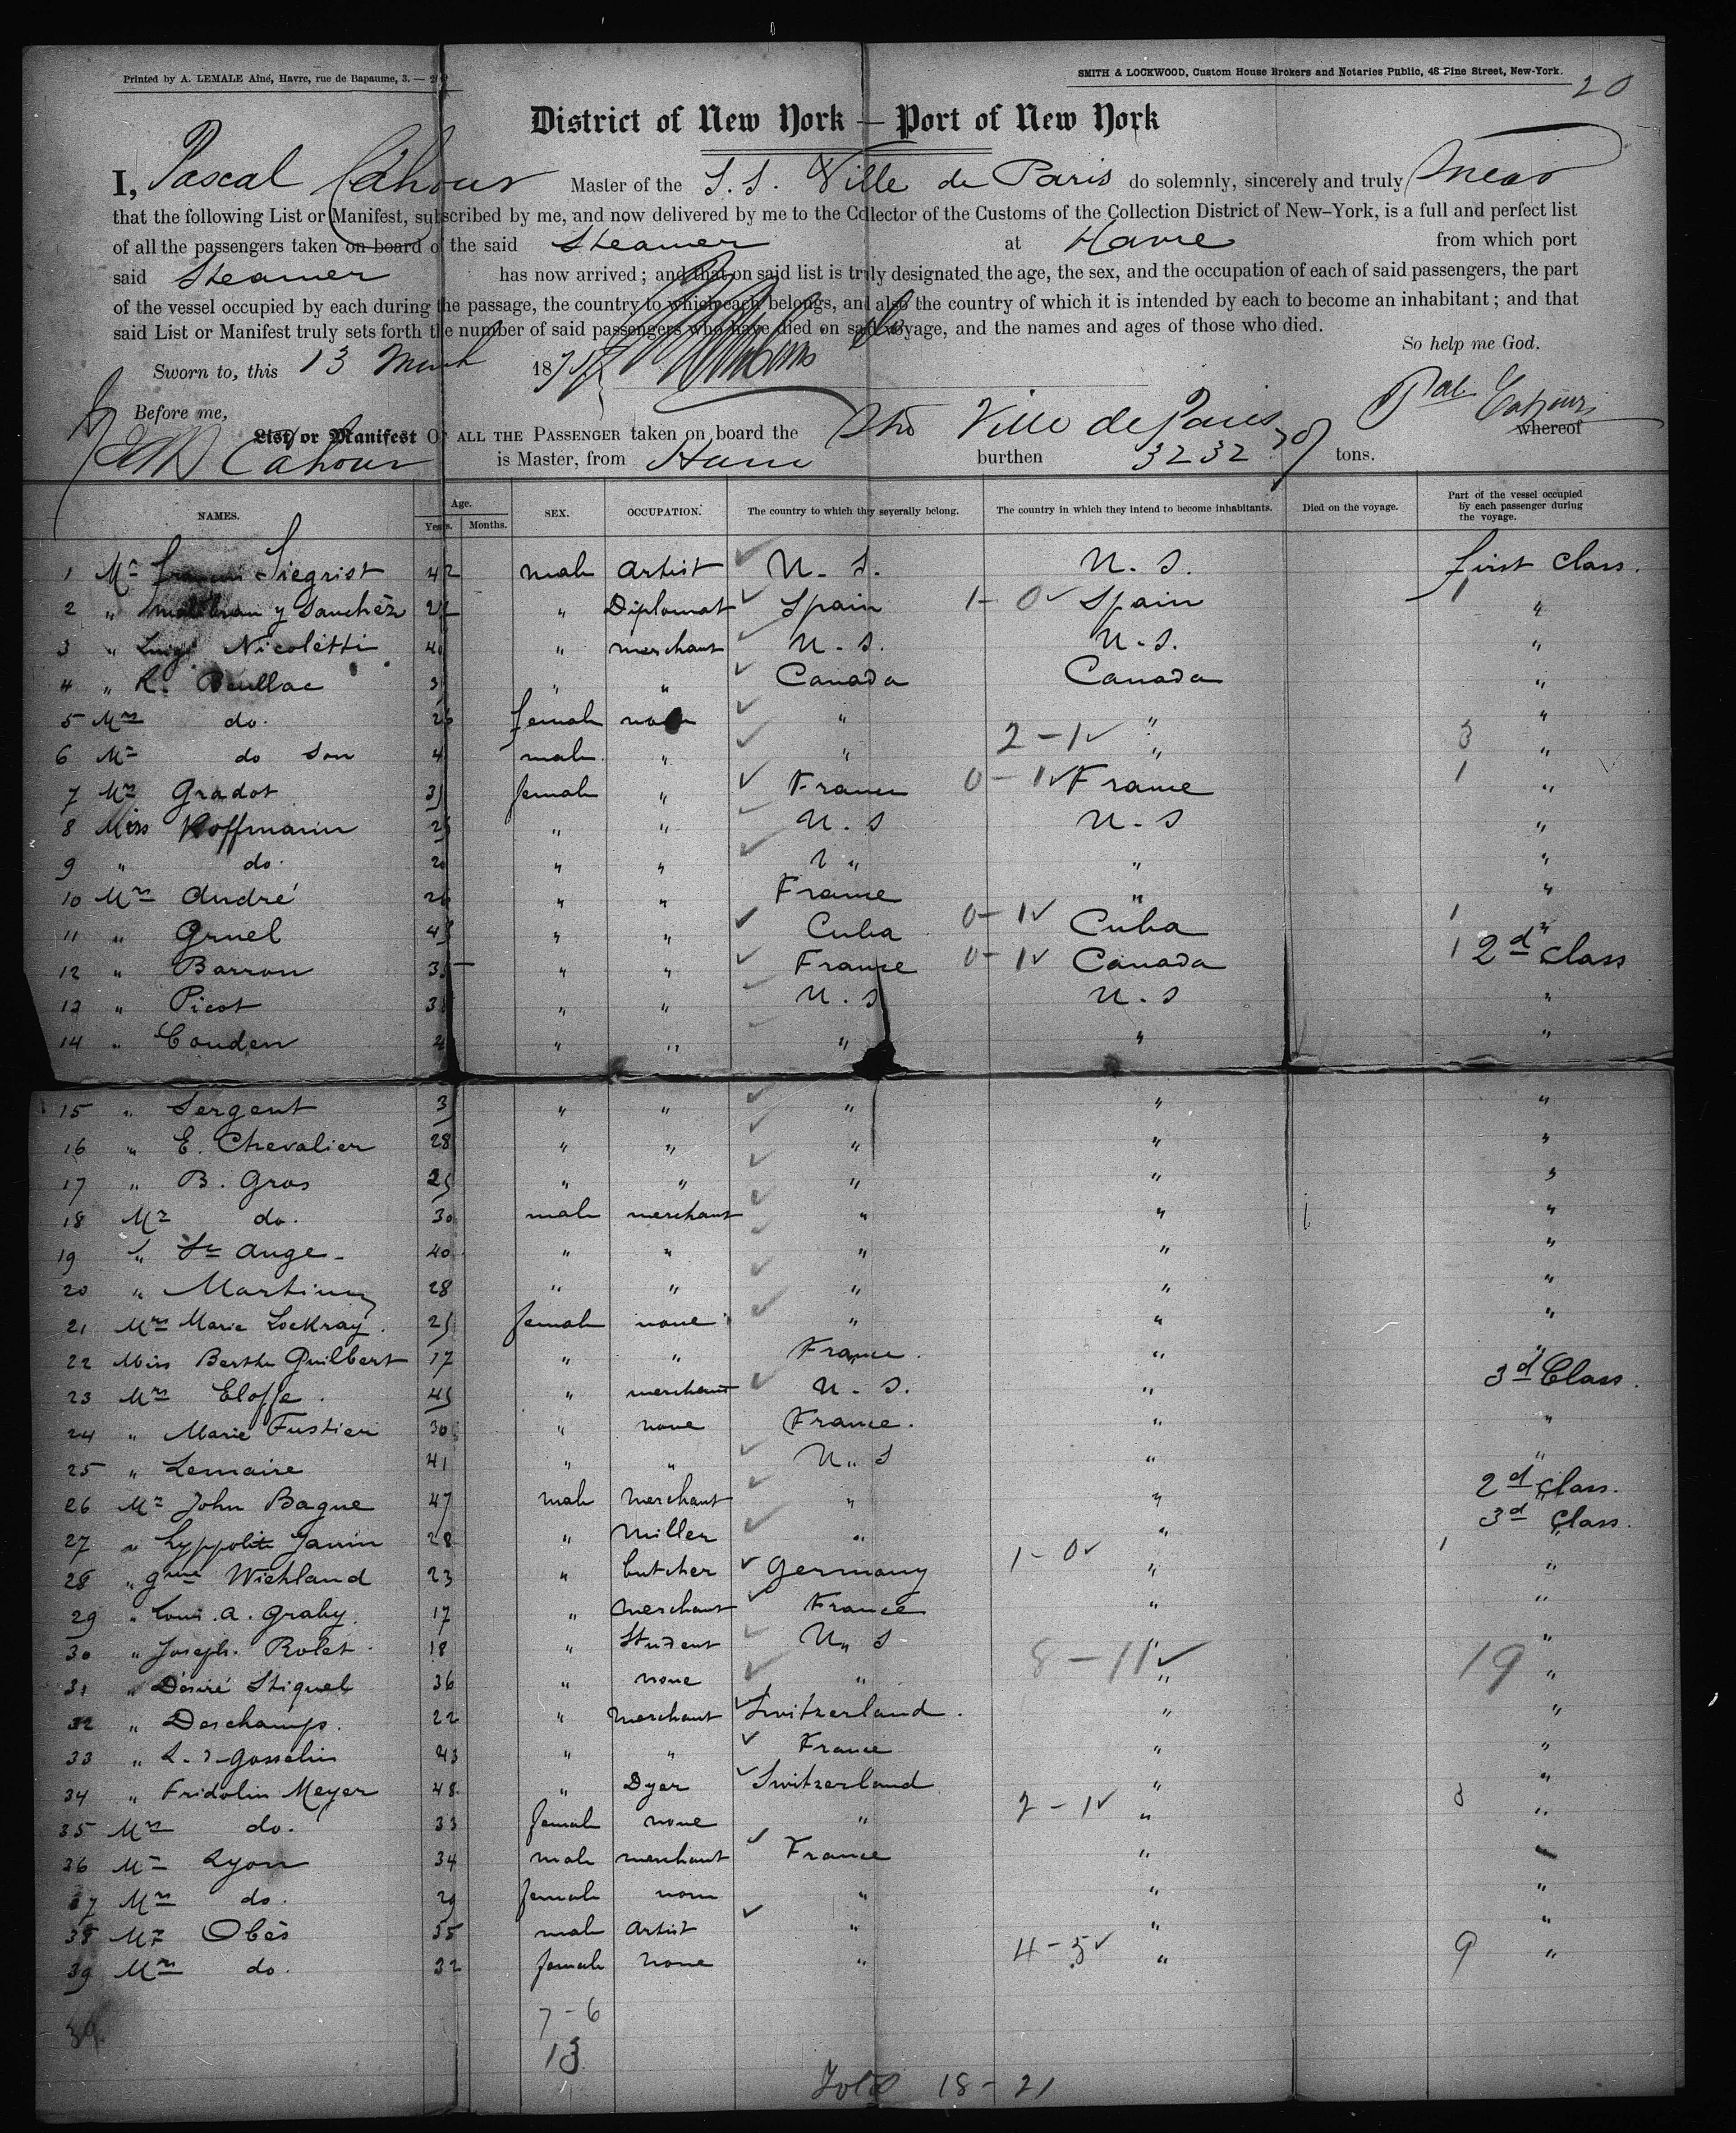 Printed by A. LEMALE Aîné, Havre, rue de Bapaume, 3. —
SMITH & LOCKWOOD, Custom House Brokers and Notaries Public, 48 Pine Street, New-York.
20
District of New York — Port of New York
I, Pascal Cahour Master of the S.S. Ville de Paris do solemnly, sincerely and truly swear
that the following List or Manifest, subscribed by me, and now delivered by me to the Collector of the Customs of the Collection District of New-York, is a full and perfect list
of all the passengers taken on board of the said Steamer at Havre from which port
said Steamer has now arrived; and that on said list is truly designated the age, the sex, and the occupation of each of said passengers, the part
of the vessel occupied by each during the passage, the country to which each belongs, and also the country of which it is intended by each to become an inhabitant; and that
said List or Manifest truly sets forth the number of said passengers who have died on said voyage, and the names and ages of those who died.
So help me God.
Sworn to, this 13 March 187
Before me,
Pal Cahour
List or Manifest OF ALL THE PASSENGER taken on board the Ville de Paris whereof
Cahour is Master, from Havre burthen 3232 tons.
NAMES. Age. Years. Months. SEX. OCCUPATION. The country to which they severally belong. The country in which they intend to become inhabitants. Died on the voyage. Part of the vessel occupied by each passenger during the voyage.
1 Mr Siegrist 42 male Artist U. S. U. S. first Class.
2 " y Sanchéz " Diplomat Spain 1-0 Spain 1 "
3 " Luigi Nicolétti " merchant U. S. U. S. "
4 " R. " " Canada Canada "
5 Mrs do. 26 female " " "
6 Mr do son 4 male " " 2-1 " 3 "
7 Mrs Gradot female " France 0-1 France 1 "
8 Miss Hoffmann " " U. S U. S "
9 " do. 20 " " " " "
10 Mrs André 26 " " France " "
11 " Gruel " " Cuba 0-1 Cuba 1 "
12 " Barron 35 " " France 0-1 Canada 1 2d Class
13 " Picot " " U. S U. S "
14 " Couden " " " " "
15 " Sergent " " " " "
16 " E. Chevalier 28 " " " " "
17 " B. Gros 25 " " " " "
18 Mr do. 30 male merchant " " "
19 " St Ange 40 " " " " "
20 " 28 " " " " "
21 Mrs Marie Lockray. 25 female none " " "
22 Miss Berthe Guilbert 17 " " France. " "
23 Mrs Eloffe. 45 " merchant U. S. " 3d Class.
24 " Marie Fustier 30 " none France. " "
25 " Lemaire 41 " " U. S " "
26 Mr John Bague 47 male Merchant " " 2d Class.
27 " Hyppolite Janin 28 " Miller " " 3d Class.
28 " Wiehland 23 " butcher Germany 1-0 " 1 "
29 " Louis. A. Graby. 17 " Merchant France " "
30 " Joseph. Rolet. 18 " Student U. S " "
31 " Désiré Stiquel 36 " none " 8-11 " 19 "
32 " Deschamps. 22 " Merchant Switzerland. " "
33 " Gosselin 43 " " France " "
34 " Fridolin Meyer 48. " Dyer Switzerland " "
35 Mrs do. 33 female none " 2-1 " 3 "
36 Mr Lyon 34 male merchant France " "
37 Mrs do. 29 female none " " "
38 Mr Obés 35 male Artist " " "
39 Mrs do. 32 female None " 4-5 " 9 "
7-6
39
13
Total 18-21